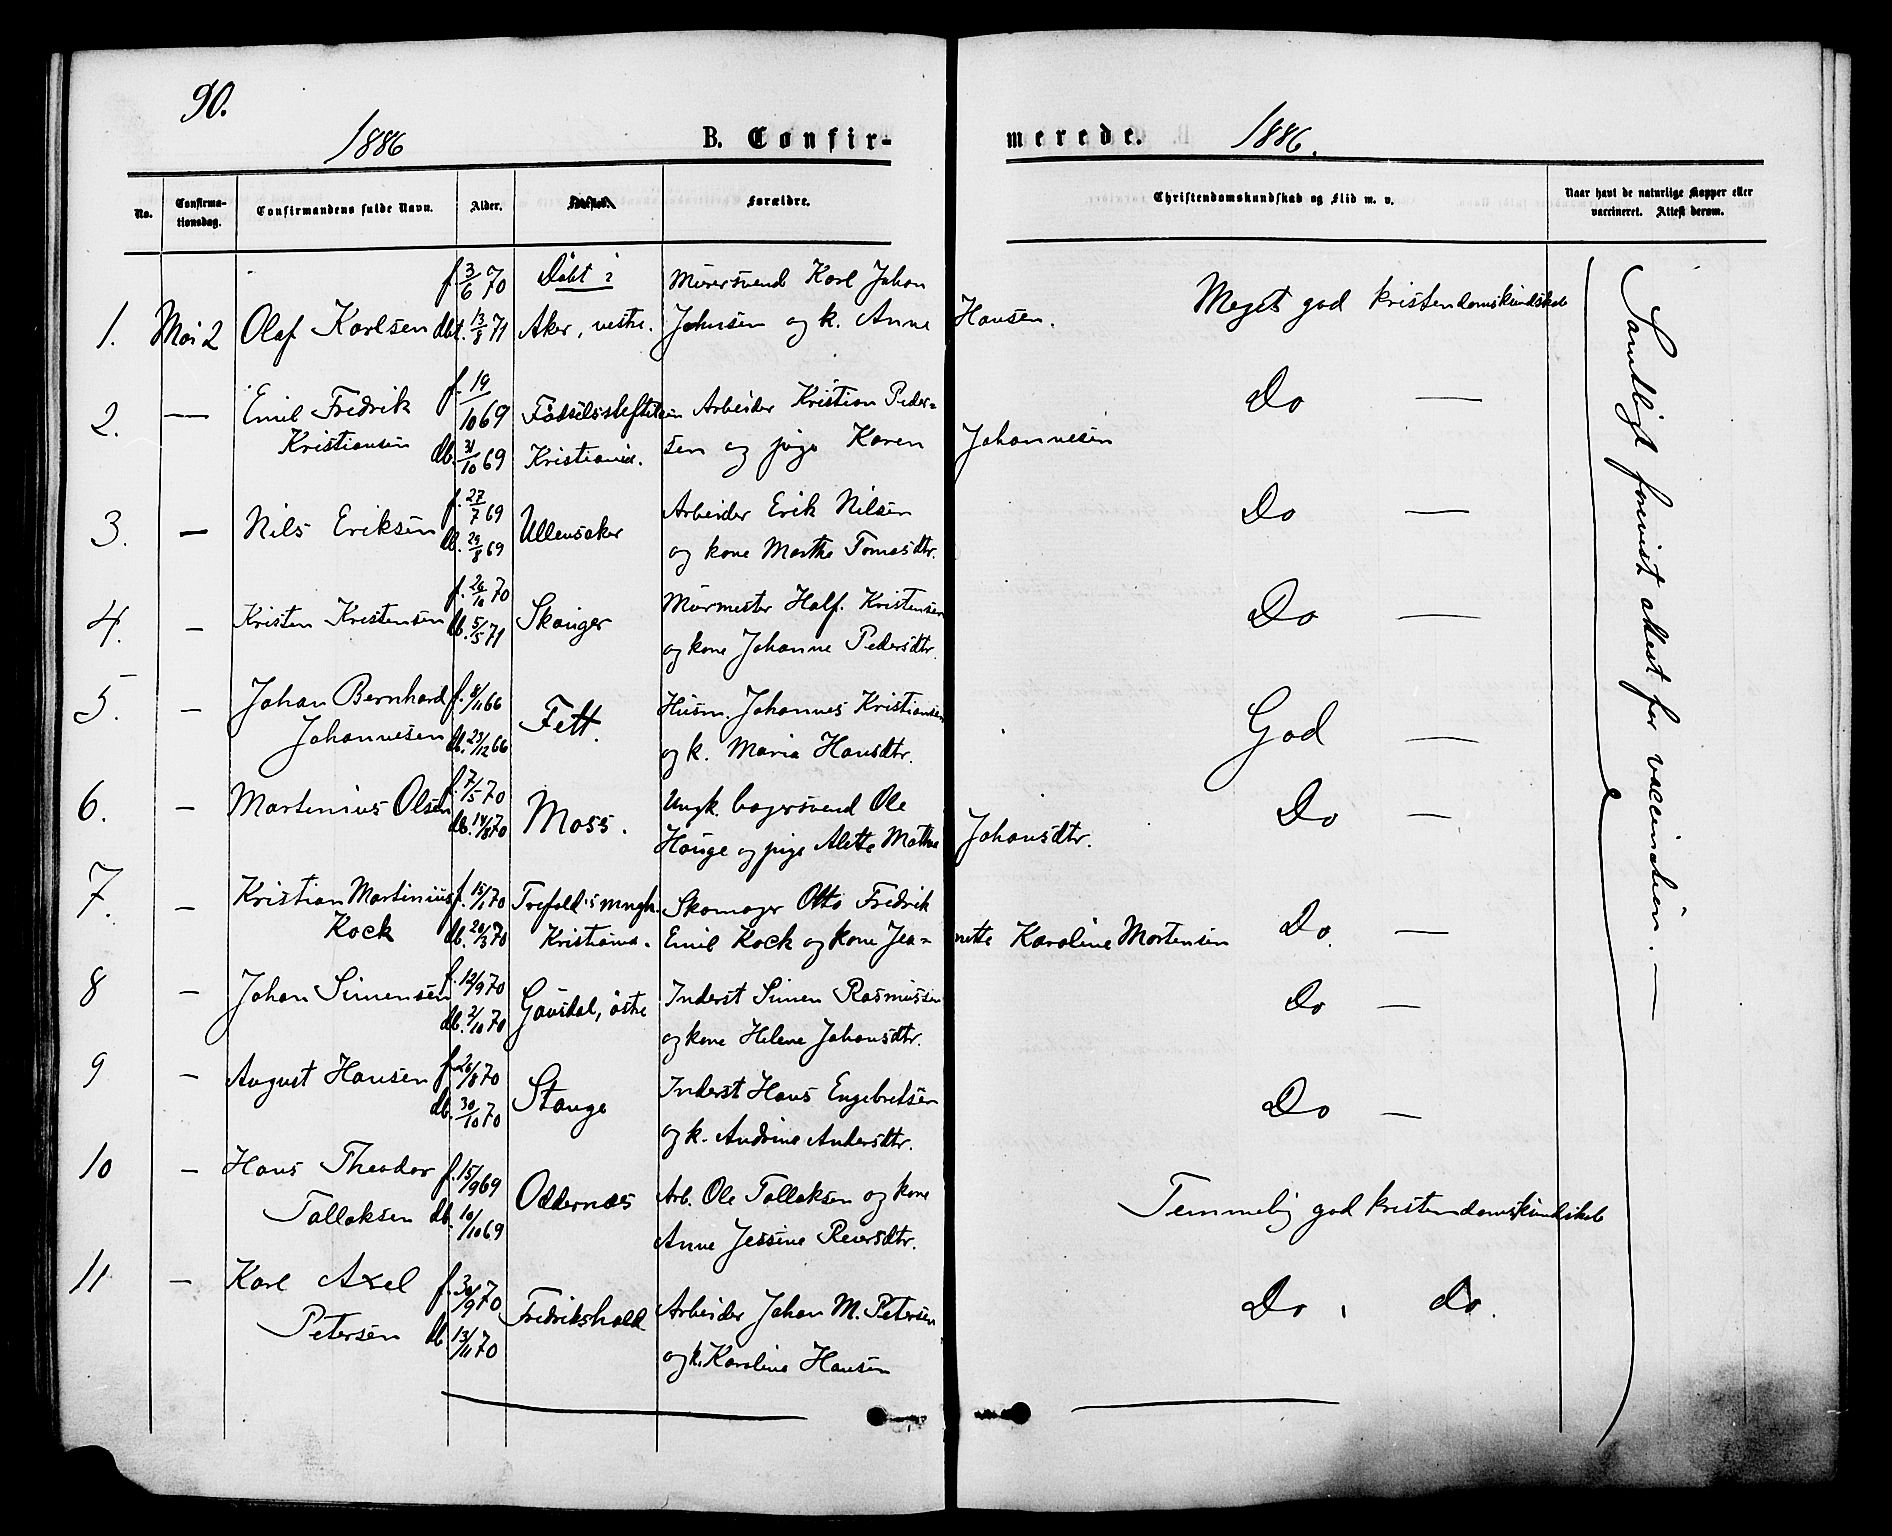 90.
1886
B. Confir-
merede.
1886.
No.
Confirma-
tionsdag.
Confirmandens fulde Navn.
Alder.
Forældre.
Christendomskundskab og Flid m. v.
Naar havt de naturlige Kopper eller
vaccineret. Attest derom.
f. 3/6 70 Döbt i Murersvend Karl Johan
1. Mai 2 Olaf Karlsen dbt. 13/8 71 Aker, vestre. Johnsen og k. Anne Hansen. Meget god kristendomskundskab
2. — Emil Fredrik f. 19/10 69 Födselsstiftelsen Arbeider Kristian Peder=
Kristiansen db. 31/10 69 Kristiania. sen og pige Karen Johannesen Do —
3. — Nils Eriksen f. 27/7 69 Ullensaker Arbeider Erik Nilsen
db. 29/8 69 og kone Marthe Tomasdtr. Do —
4. — Kristen Kristensen f. 26/10 70 Skauger Murmester Half. Kristensen
db. 5/5 71 og kone Johanne Pedersdtr. Do —
5. — Johan Bernhard f. 8/11 66 Fett. Husm. Johannes Kristiansen
Johannesen db. 23/12 66 og k. Maria Hansdtr. God —
6. — Martinius Olsen f. 7/5 70 Moss. Ungk. bagersvend Ole
db. 14/8 70 Hauge og pige Alette Mathea Johansdtr. Do —
7. — Kristian Martinius f. 15/1 70 Trefoldi.smngh. Skomager Otto Fredrik
Kock db. 20/3 70 Kristiania. Emil Kock og kone Jea-nette Karoline Mortensen Do. —
8 — Johan Simensen f. 12/9 70 Gausdal, östre Inderst Simen Rasmussen
db. 2/10 70 og kone Helene Johansdtr. Do —
9 — August Hansen f. 26/8 70 Stange Inderst Hans Engebretsen
db. 30/10 70 og k. Andrine Andersdtr. Do —
10 — Hans Theodor f. 15/9 69 Oddernæs Arb. Ole Tallaksen og kone
Tallaksen db. 10/10 69 Anne Jessine Reiersdtr. Temmelig god kristendomskundskab
11 — Karl Axel f. 30/9 70 Fredrikshald Arbeider Johan M. Petersen
Petersen db. 13/11 70 og k. Karoline Hansen Do , do.
Samtligt forevist attest for vaccination. —